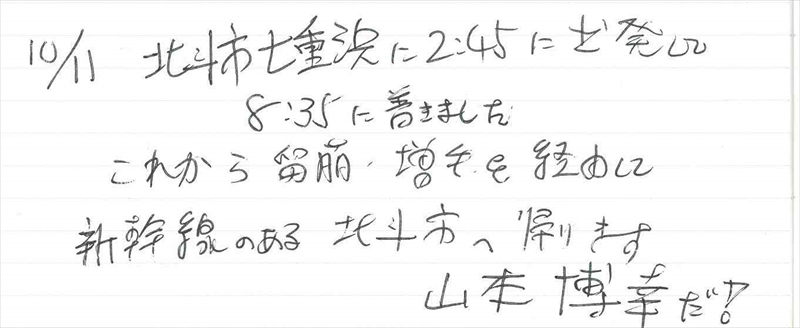 10/11 北斗市七重浜に2:45に出発して
8:35に着きました
これから留萌・増毛を経由して
新幹線のある 北斗市へ帰ります
山本博幸だ!